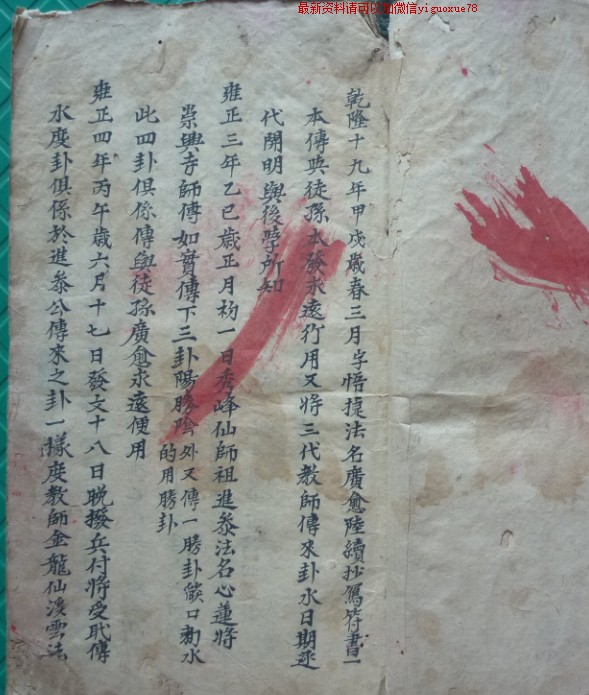 最新资料请可以加微信yiguoxue78
乾隆十九年甲戌歲春三月字悟捷法名廣愈陸續抄寫符書一
本傳與徒孫本發永遠行用又將三代教師傳來卦水日期逐
代開明與後學所知
雍正三年乙巳歲正月初一日秀峰仙師祖進叅法名心蓮將
崇興寺師傅如實傳下三卦陽勝陰外又傳一勝卦燄口勑水
的用勝卦
此四卦俱係傳與徒孫廣愈永遠便用
雍正四年丙午歲六月十七日發文十八日晚撥兵付將受戒傳
水度卦俱係於進叅公傳來之卦一樣度教師金龍仙溪雲法